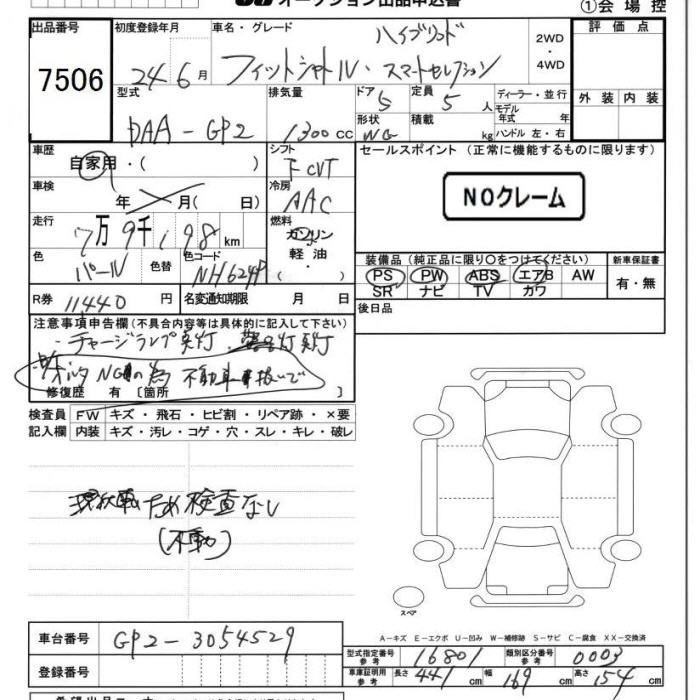 オークション出品申込書 ①会場控
出品番号 初度登録年月 車名・グレード ハイブリッド 2WD ・ 4WD 評価点
7506 24 6月 フィットシャトル・スマートセレクション
型式 排気量 ドア 5 定員 5人 ディーラー・並行 外装 内装
DAA-GP2 1300cc 形状 WG 積載 kg モデル年式 年 ハンドル 左・右
車歴 シフト セールスポイント (正常に機能するものに限ります)
自家用・( ) FCVT
車検 冷房 NOクレーム
年 月( 日) AAC
走行 燃料
7万9千198km ガソリン
色 色替 色コード 軽油 装備品 (純正品に限り○をつけてください) 新車保証書
パール NH624P ( ) PS PW ABS エアB AW 有・無
SR ナビ TV カワ
R券 11440円 名変通知期限 月 日 後日品
注意事項申告欄 (不具合内容等は具体的に記入して下さい)
・チャージランプ点灯
NGの為 不動車扱いで
修復歴 有 [箇所 ]
検査員 FW キズ・飛石・ヒビ割・リペア跡・×要
記入欄 内装 キズ・汚レ・コゲ・穴・スレ・キレ・破レ
現状車のため検査なし
(不動)
スペア
A-キズ E-エクボ U-凹み W-補修跡 S-サビ C-腐食 XX-交換済
車台番号 GP2-3054529 型式指定番号 参考 16801 類別区分番号 参考 0003
登録番号 車庫証明用 参考 長さ 441cm 幅 169cm 高さ 154cm